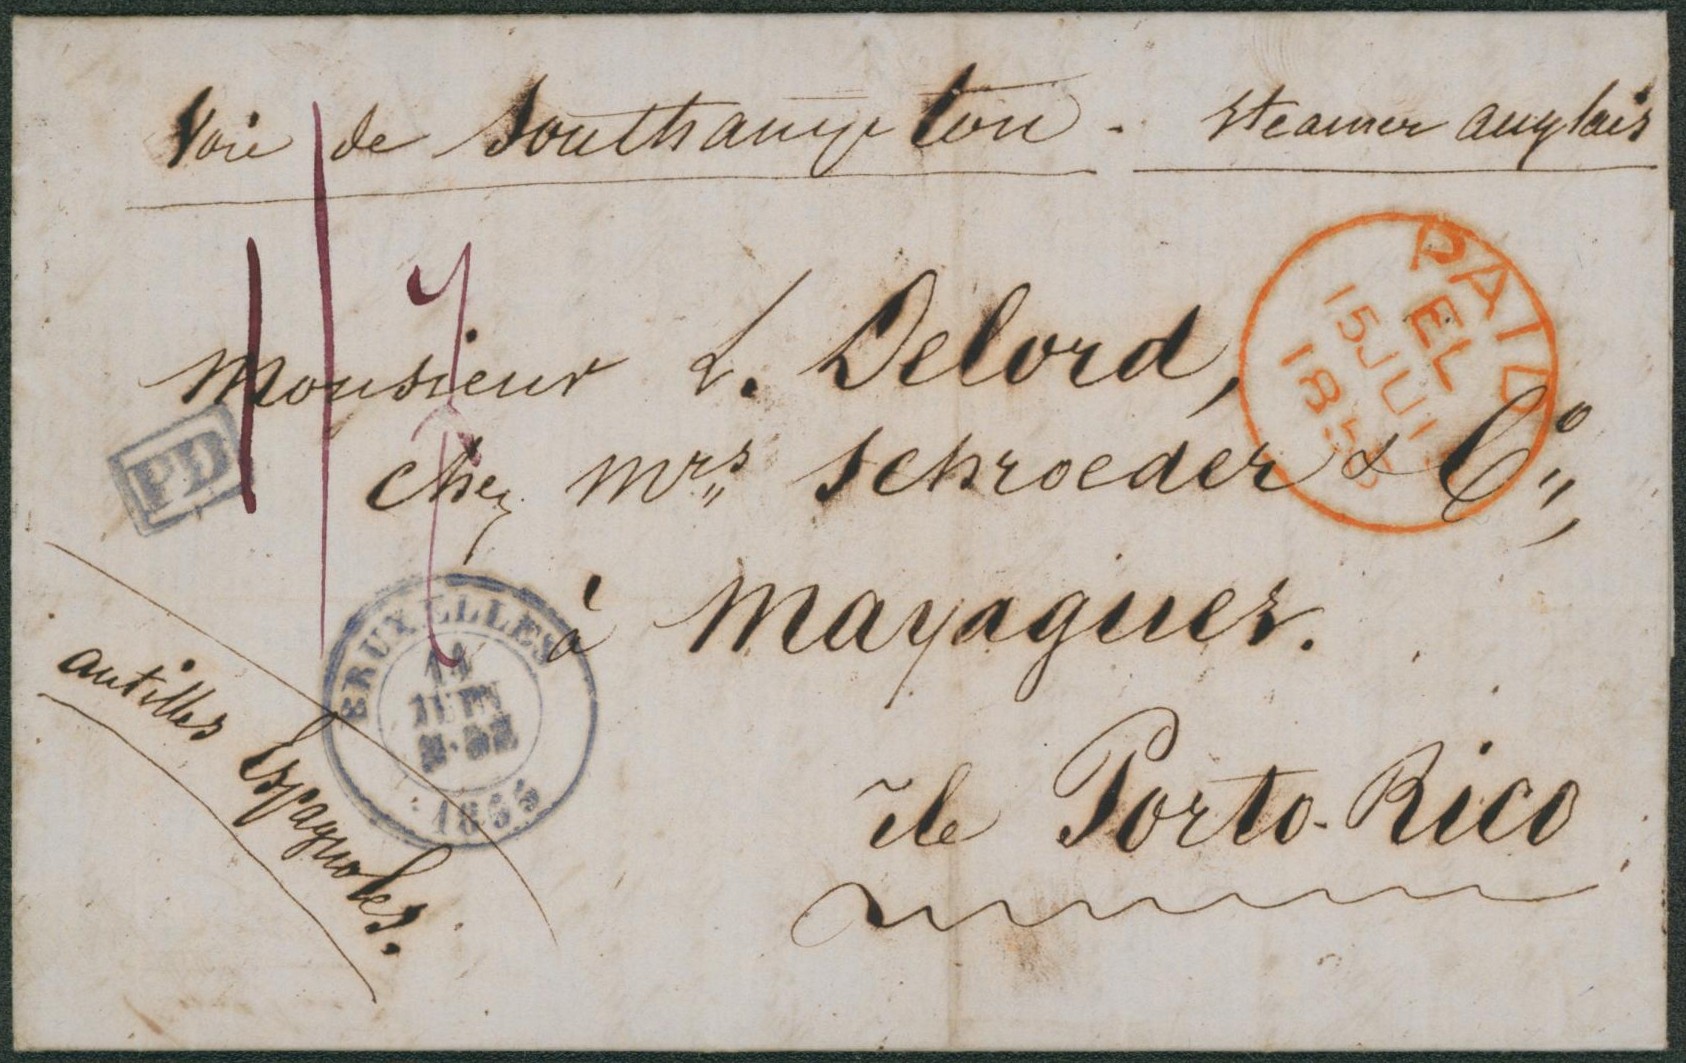 Voie de Southampton - steamer anglais
Monsieur L. Delord,
chez Mrs Schroeder & Co,
à Mayaguez.
île Porto-Rico
antilles Espagnoles.
PD
BRUXELLES
14
JUIN
1855
PAID
EL
15 JU
185